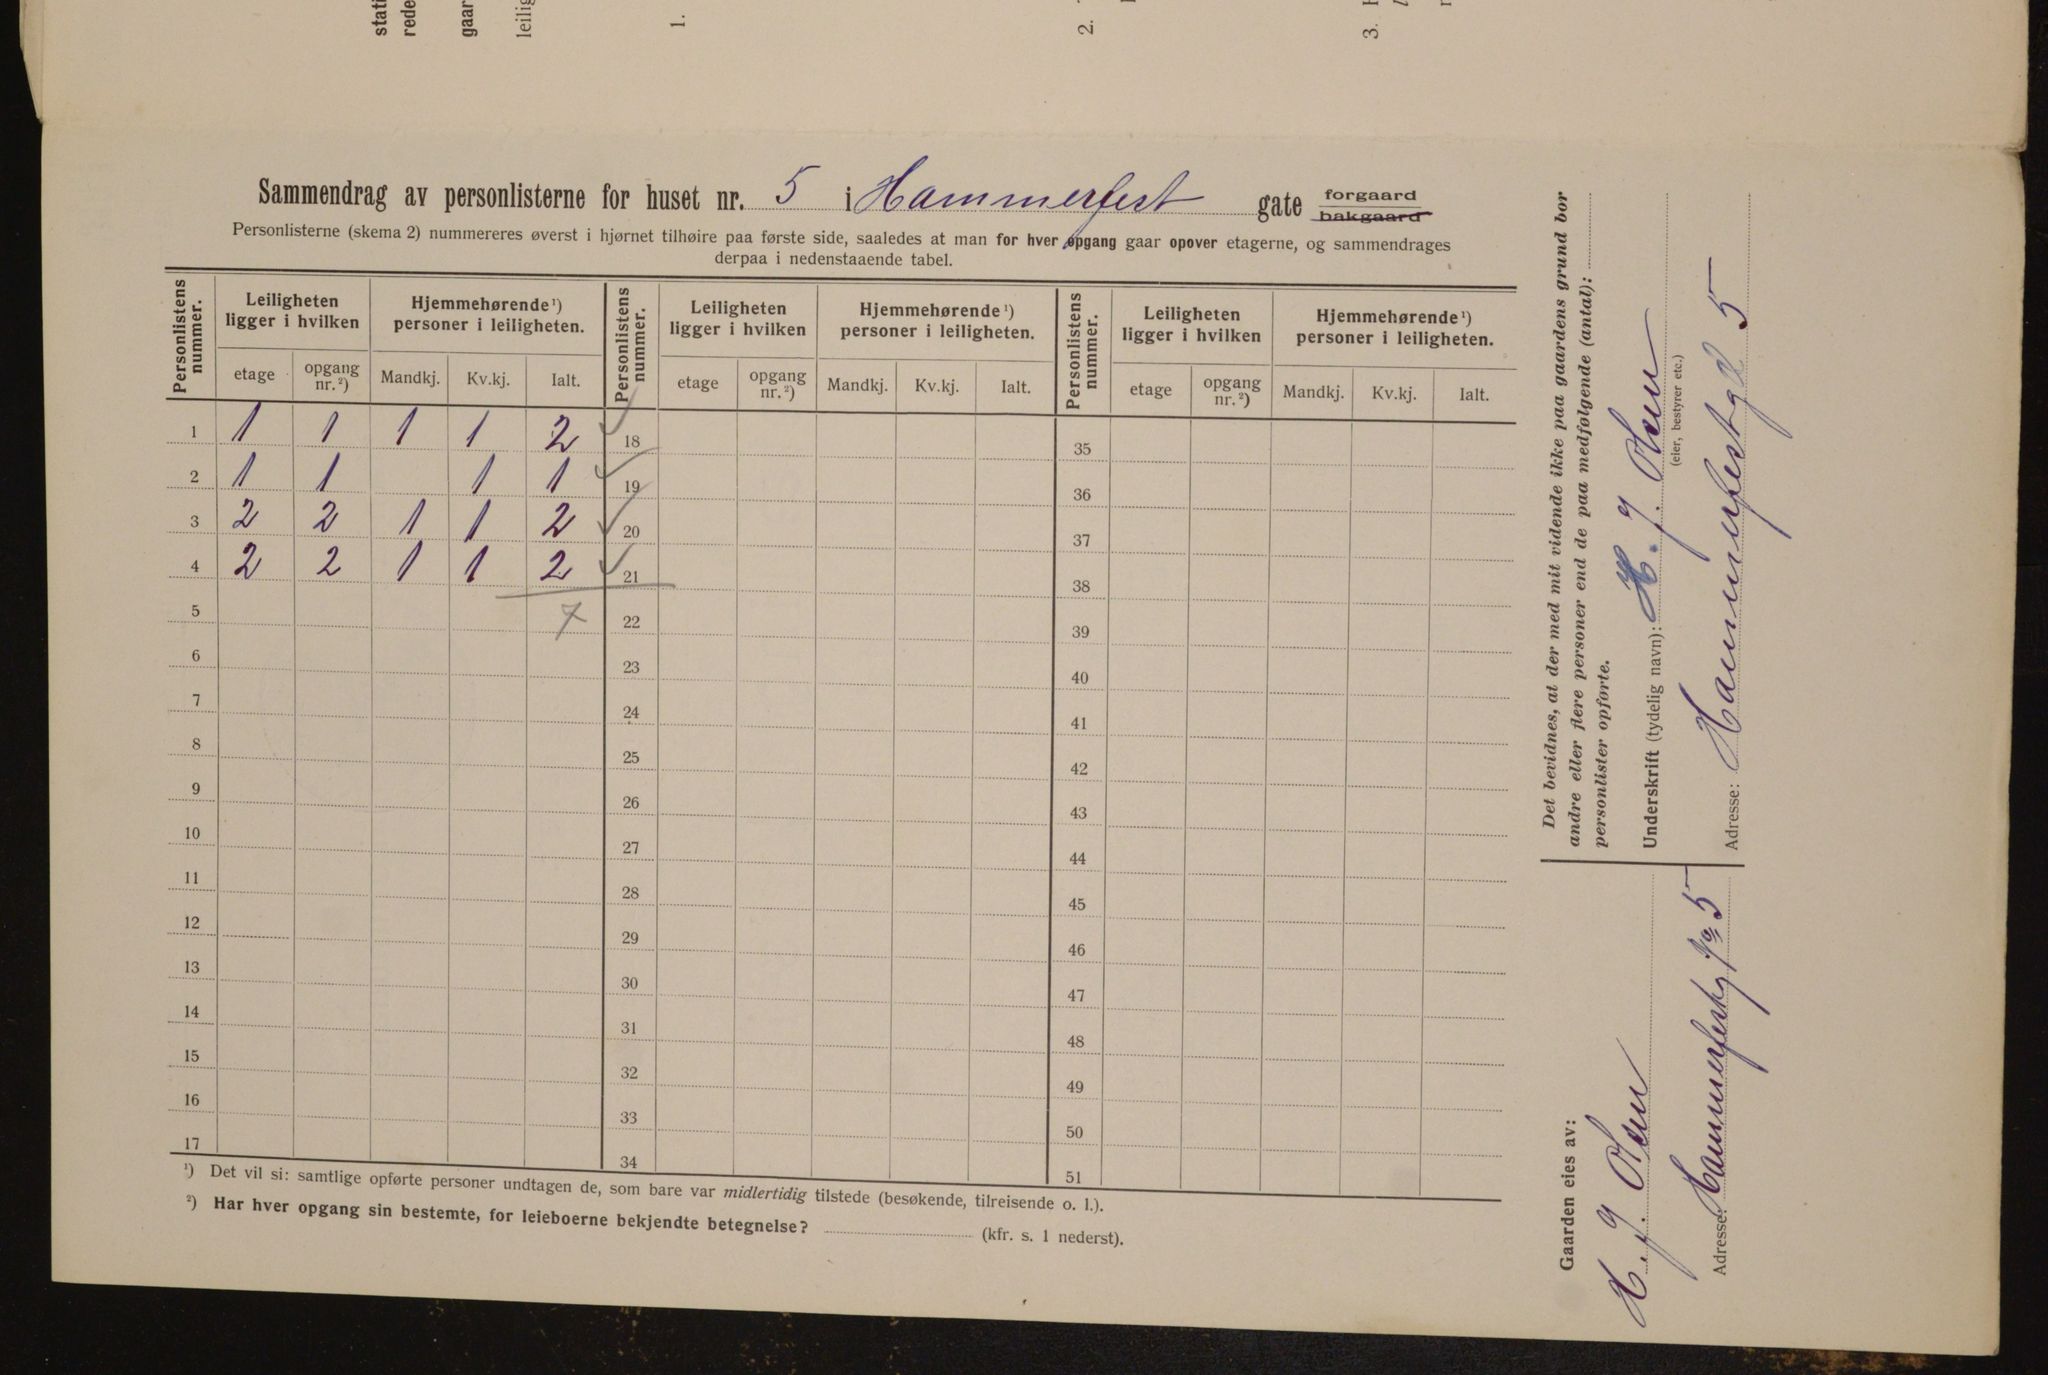 stati
rede
gaar
leilig
1.
2.
3.
Sammendrag av personlisterne for huset nr. 5 i Hammerfest gate forgaard
bakgaard
Personlisterne (skema 2) nummereres øverst i hjørnet tilhøire paa første side, saaledes at man for hver opgang gaar opover etagerne, og sammendrages
derpaa i nedenstaaende tabel.
Personlistens nummer. Leiligheten ligger i hvilken Hjemmehørende¹) personer i leiligheten. Personlistens nummer. Leiligheten ligger i hvilken Hjemmehørende¹) personer i leiligheten. Personlistens nummer. Leiligheten ligger i hvilken Hjemmehørende¹) personer i leiligheten.
etage opgang nr.²) Mandkj. Kv.kj. Ialt. etage opgang nr.²) Mandkj. Kv.kj. Ialt. etage opgang nr.²) Mandkj. Kv.kj. Ialt.
1 1 1 1 1 2 18 35
2 1 1 1 1 19 36
3 2 2 1 1 2 20 37
4 2 2 1 1 2 21 38
5 7 22 39
6 23 40
7 24 41
8 25 42
9 26 43
10 27 44
11 28 45
12 29 46
13 30 47
14 31 48
15 32 49
16 33 50
17 34 51
¹) Det vil si: samtlige opførte personer undtagen de, som bare var midlertidig tilstede (besøkende, tilreisende o. l.).
²) Har hver opgang sin bestemte, for leieboerne bekjendte betegnelse? (kfr. s. 1 nederst).
Det bevidnes, at der med mit vidende ikke paa gaardens grund bor
andre eller flere personer end de paa medfølgende (antal):
personlister opførte.
Underskrift (tydelig navn): H. J. Olsen
(eier, bestyrer etc.)
Adresse: Hammerfestgd 5
Gaarden eies av:
H. J. Olsen
Adresse: Hammerfestg 5